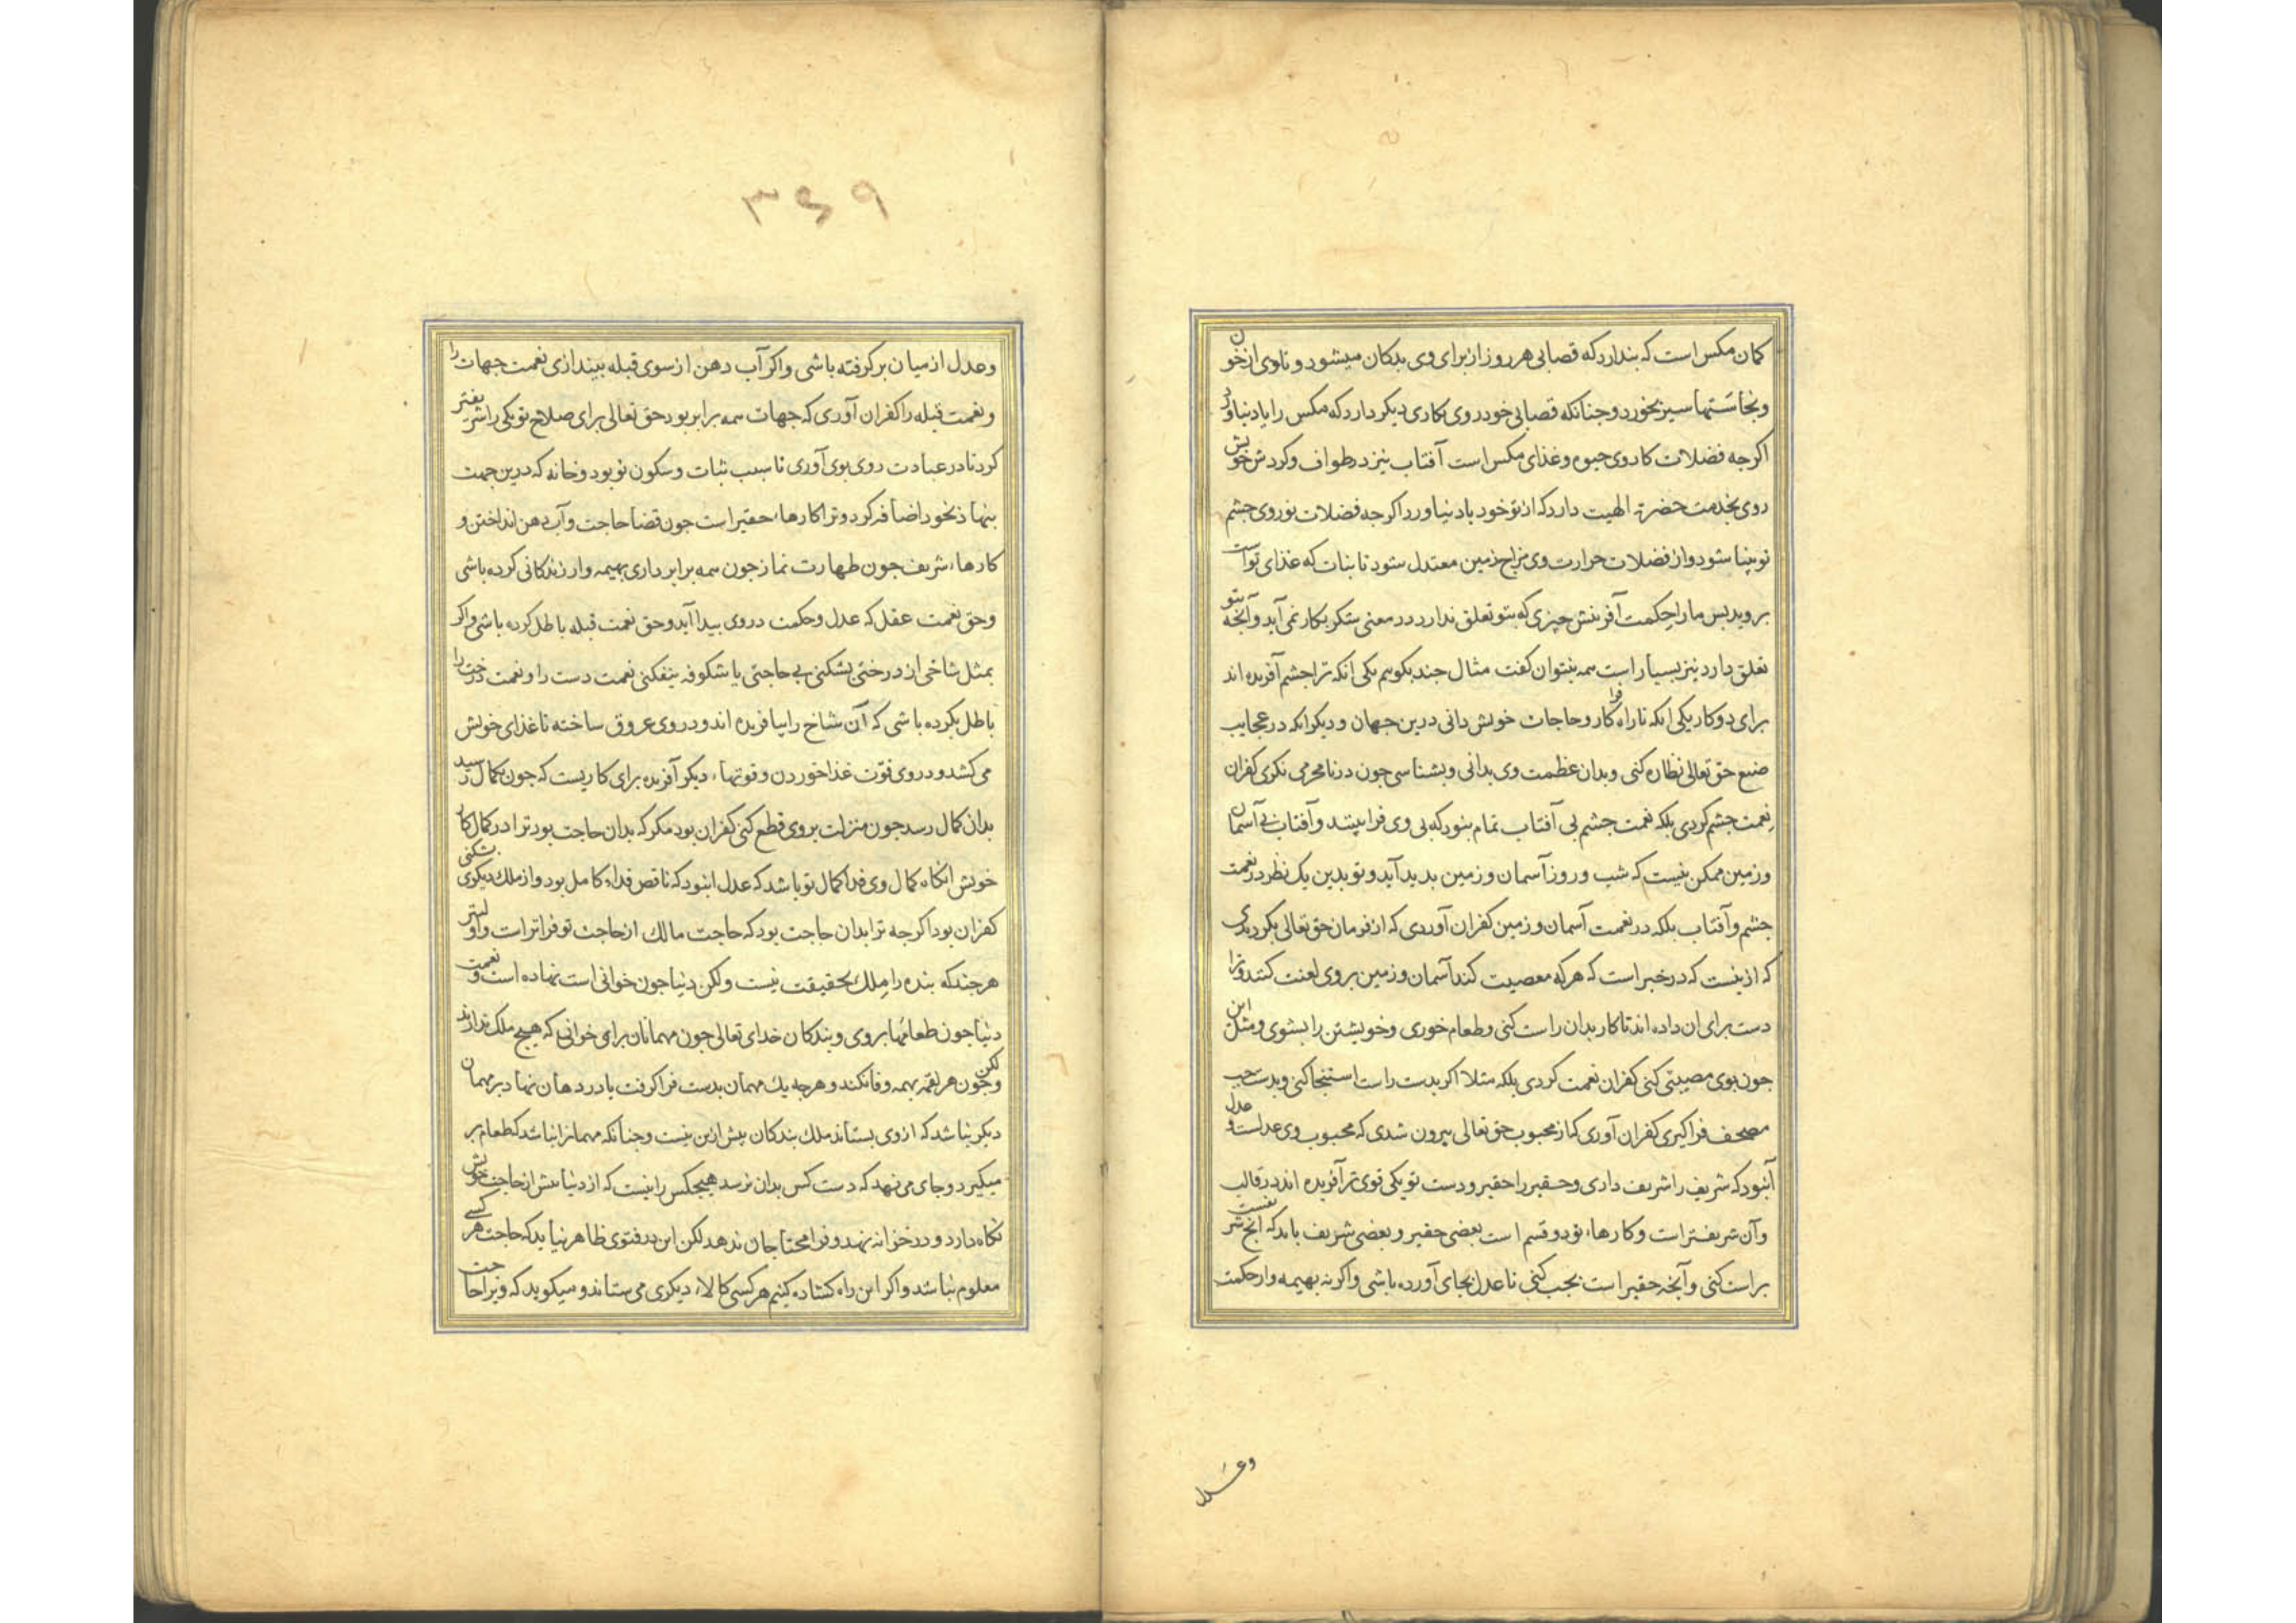 کمان مکس است که بندارد که قصابی هر روز از برای وی بدکان میشود و تا وی از خون
و نجاستها سیر بخورد و جنانکه قصابی خود روی بکاری دیکر دارد که مکس را یاد نیاورد
اکرجه فضلات کار وی حیوه و غذای مکس است آفتاب نیز در طواف و کردش خویش
روی بخدمت حضرت الهیت دارد که از تو خود یاد نیاورد اکرجه فضلات نور وی جشم
تو بینا شود و از فضلات حرارت وی مزاج زمین معتدل شود تا نبات که غذای تو است
بروید بس ما را حکمت آفرینش جیزی که بتو تعلق ندارد در معنی شکر بکار نمی آید و آنجه بتو
تعلق دارد نیز بسیار است همه نتوان کفت مثال جند بکوییم یکی انکه ترا جشم آفریده اند
برای دو کار یکی انکه تا راه فرا کار و حاجات خویش دانی درین جهان و دیکر انکه در عجایب
صنع حق تعالی نظاره کنی و بدان عظمت وی بدانی و بشناسی جون در نامحرمی نکری کفران
نعمت جشم کردی بلکه نعمت جشم بی آفتاب تمام نبود که بی وی فرا نبیند و آفتاب بی آسمان
و زمین ممکن نیست که شب و روز آسمان و زمین بدید آید و تو بدین یک نظر در نعمت
جشم و آفتاب بلکه در نعمت آسمان و زمین کفران آوردی که از فرمان حق تعالی بکردیدی
که ازینست که در خبر است که هرکه معصیت کند آسمان و زمین بر وی لعنت کنند و ترا
دست برای ان داده اند تا کار بدان راست کنی و طعام خوری و خویشتن را بشوی و مثل این
جون بوی معصیتی کنی کفران نعمت کردی بلکه مثلا اکر بدست راست استنجا کنی و بدست جب
مصحف فرا کیری کفران آوری که از محبوب حق تعالی بیرون شدی که محبوب وی عدلست و عدل
آنبود که شریف را شریف داری و حقیر را حقیر و دست تو یکی قوی تر آفریده اند در قالب
و آن شریفتر است و کارهاء تو دو قسم است بعضی حقیر و بعضی شریف باید که انج شریفست
براست کنی و آنجه حقیر است بجب کنی تا عدل بجای آورده باشی و اکر نه بهیمه وار حکمت
وعدل
۳۶۹
و عدل از میان بر کرفته باشی و اکر آب دهن از سوی قبله بیندازی نعمت جهات را
و نعمت قبله را کفران آوری که جهات همه برابر بود حق تعالی برای صلاح تو یکی را شریفتر
کرد تا در عبادت روی بوی آوری تا سبب ثبات و سکون تو بود و خانه که درین جهت
بنهاد بخود اضافه کرد و ترا کارهاء حقیر است جون قضا حاجت و آب دهن انداختن و
کارهاء شریف جون طهارت نماز جون همه برابر داری بهیمه وار زندکانی کرده باشی
و حق نعمت عقل که عدل و حکمت در وی بیدا آید و حق نعمت قبله باطل کرده باشی و اکر
بمثل شاخی از درختی بشکنی بی حاجتی یا شکوفه بیفکنی نعمت دست را و نعمت درخت را
باطل بکرده باشی که آن شاخ را بیافریده اند و در وی عروق ساخته تا غذای خویش
می کشد و در وی قوت غذا خوردن و قوتهاء دیکر آفریده برای کاریست که جون بکمال رسید
بدان کمال رسد جون منزلت بر وی قطع کنی کفران بود مکر که بدان حاجت بود ترا در کمال کار
خویش انکاه کمال وی فداء کمال تو باشد که عدل انبود که ناقص فداء کامل بود و از ملک دیکری شکنی
کفران بود اکرجه ترا بدان حاجت بود که حاجت مالک از حاجت تو فراتر است و اولیتر
هرجند که بنده را ملک بحقیقت نیست ولکن دنیا جون خوانی است نهاده است و نعمت
دنیا جون طعامها بر وی و بندکان خدای تعالی جون مهمانان برای خوانی که هیج ملک ندارند
و جون هر لقمه بهمه وفا نکند و هرجه یک مهمان بدست فرا کرفت یا در دهان نهاد بر مهمان لکن
دیکر نباشد که از وی بستاند ملک بندکان بیش ازین نیست و جنانکه مهمانرا نباشد که طعام بر
میکیرد و جای می نهد که دست کس بدان نرسد هیجکس را نیست که از دنیا بیش از حاجت خویش
نکاه دارد و در خزانه نهد و فرا محتاجان ندهد لکن این در فتوی ظاهر نیاید که حاجت هر کسی
معلوم نباشد و اکر این راه کشاده کنیم هر کسی کالاء دیکری می ستاند و میکوید که ویرا حاجت